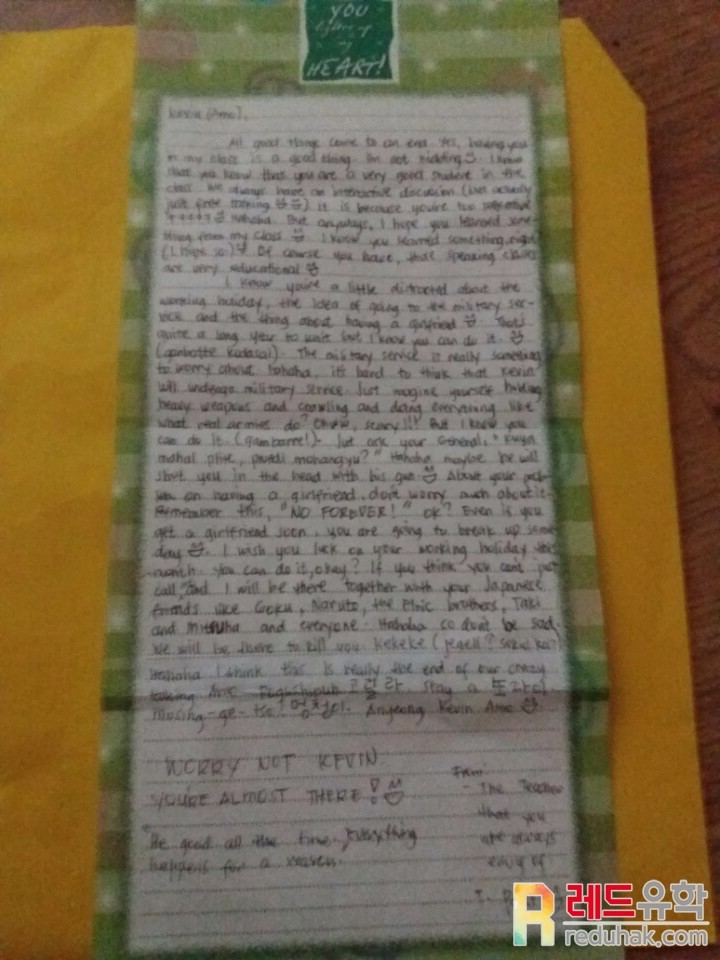 YOU
HEART!
Kevin (Amo),
All good things come to an end. Yes, having you
in my class is a good thing. I'm not kidding. I know
that you know that you are a very good student in the
class. We always have an interactive discussion (but actually
just free talking) It is because you're too
Hahaha. But anyways, I hope you learned some-
thing from my class. I know you learned something, right
(I hope so) Of course you have, those speaking classes
are very educational
I know you're a little distracted about the
working holiday, the idea of going to the military ser-
vice and the thing about having a girlfriend. That's
quite a long year to wait but I know you can do it.
(ganbatte kudasai). The military service is really something
to worry about hahaha, it's hard to think that Kevin
will undergo military service. Just imagine yourself holding
heavy weapons and crawling and doing everything like
what real armies do? Ohww, scary!!! But I know you
can do it (gambarre!). Just ask your General, "Kuya
mahal plite, pwedi mohangyu?" Hahaha maybe he will
shot you in the head with his gun About your prob-
lem on having a girlfriend, don't worry much about it.
Remember this, "NO FOREVER!" ok? Even if you
get a girlfriend soon, you are going to break up some
day. I wish you luck on your working holiday this
month. You can do it, okay? If you think you can't just
call, and I will be there together with your Japanese
friends like Goku, Naruto, the Elric brothers, Taki
and Mitsuha and everyone. Hahaha so don't be sad
We will be there to kill you kekeke
Hahaha I think this is really the end of our crazy
talking Amo. Stay a 또라이
멍청이. Anyeong Kevin Amo
WORRY NOT KEVIN
YOU'RE ALMOST THERE!
Be good all the time. Everything
happens for a reason.
From:
- The Teacher
that you
are always
envy of
T.
레드유학
reduhak.com